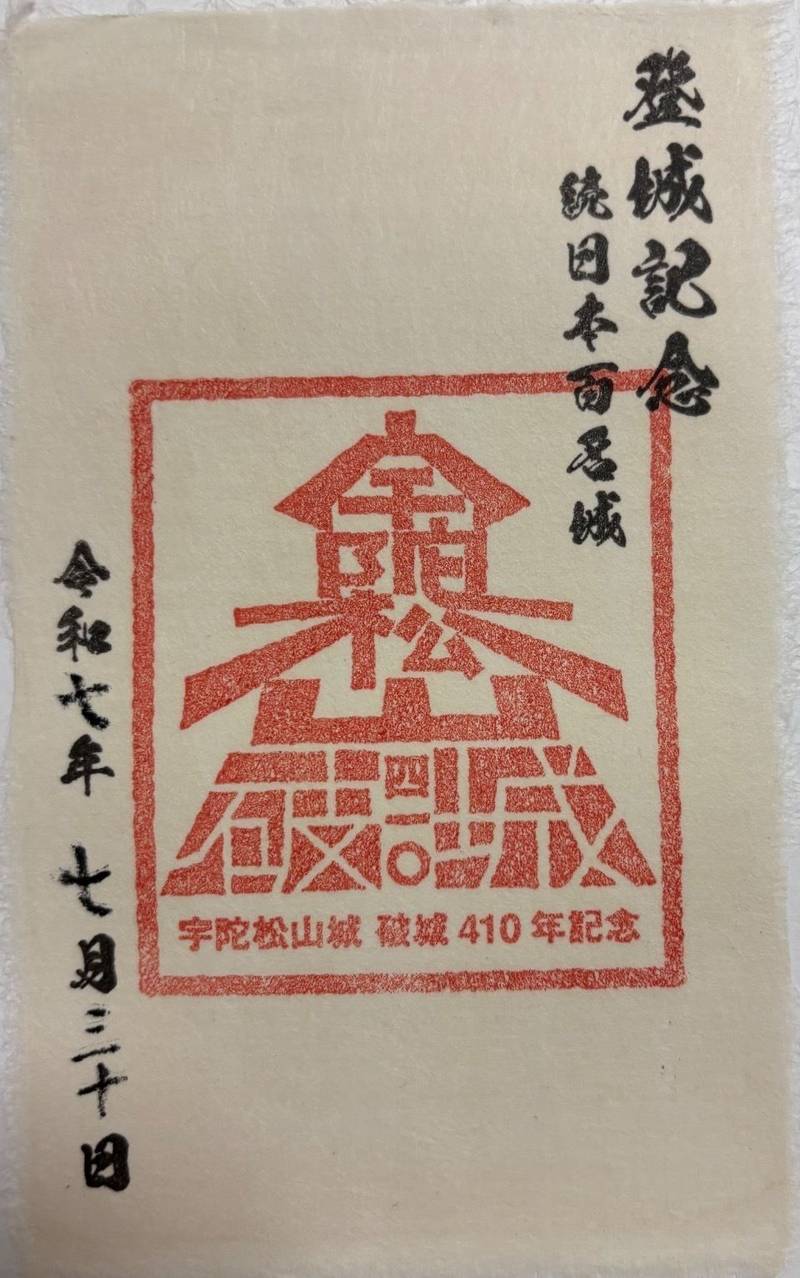 登城記念
続日本百名城
宇陀松山城
破城
四一〇
宇陀松山城 破城 410 年記念
令和七年 七月三十日